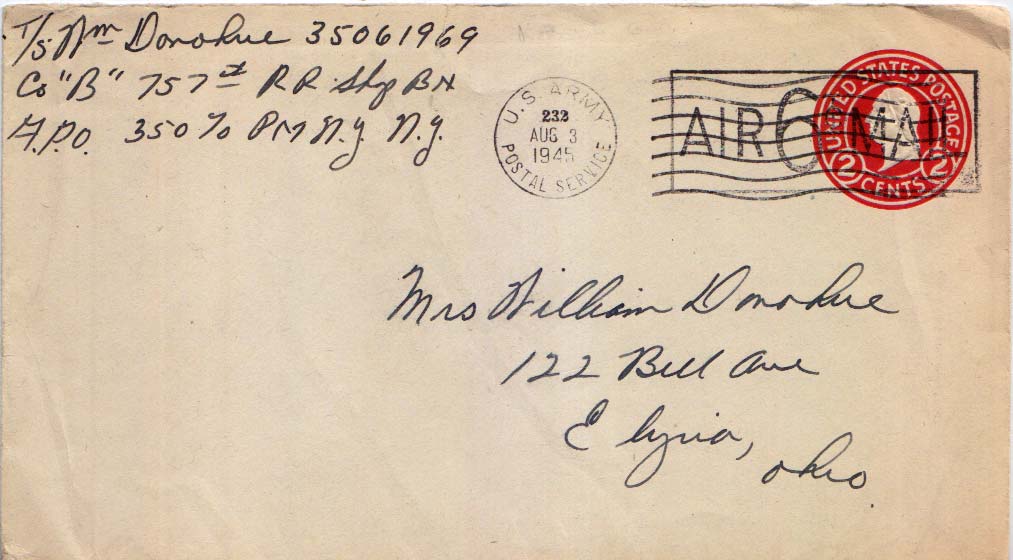 T/5 Wm Donohue 35061969
Co "B" 757th R R Shp Bn
A.P.O. 350 % PM N.Y. N.Y.
U.S. ARMY
232
AUG 3
1945
POSTAL SERVICE
AIR 6 MAIL
UNITED STATES POSTAGE
2 CENTS 2
Mrs William Donohue
122 Bell Ave
Elyria,
Ohio